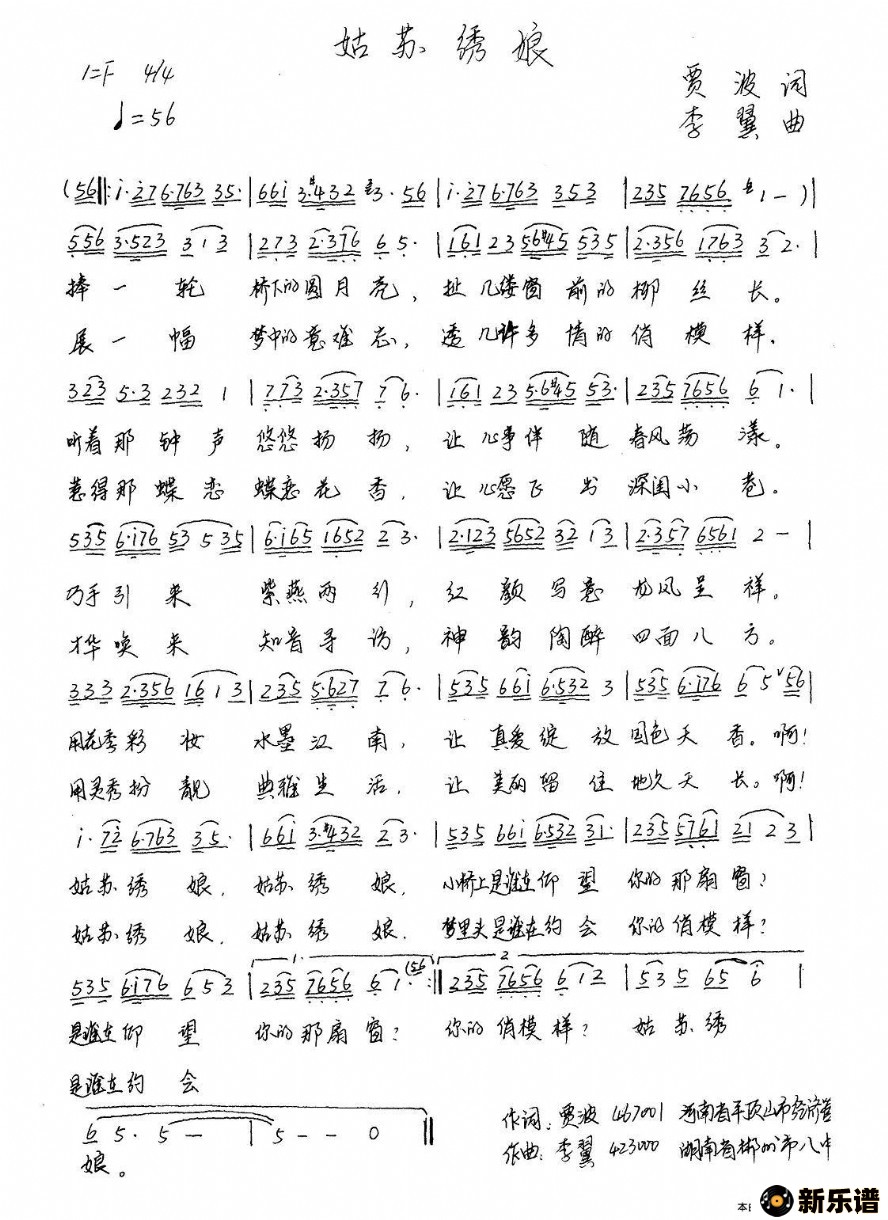 姑苏绣娘
1=F 4/4
♩=56
贾波词
李翼曲
(56‖:i·276·763 35·|661 3·#432 3·56|i·276·763 353|235 7656 1-)|
556 3·523 313|273 2·376 65·|161 23 56#45 535|2·356 1763 32·|
捧一轮 桥下的圆月亮，扯几缕窗前的柳丝长。
展一幅 梦中的意难忘，透几许多情的俏模样。
323 5·3 232 1|773 2·357 76·|161 23 5·6#45 53·|235 7656 61·|
听着那钟声悠悠扬扬，让心事伴随春风荡漾。
惹得那蝶恋蝶恋花香，让心愿飞出深闺小巷。
535 6·i76 53 535|6·i65 1652 23·|2·123 5652 32 13|2·357 6561 2-|
巧手引来 紫燕两行，红颜写意 龙凤呈祥。
才华唤来 知音寻访，神韵陶醉四面八方。
333 2·356 16 13|235 5·627 76·|535 661 6·532 3|535 6·i76 65 56|
用花秀彩妆 水墨江南，让真爱绽放国色天香。啊！
用灵秀扮靓 典雅生活，让美丽留住地久天长。啊！
i·72 6·763 35·|661 3·#432 23·|535 661 6·532 31·|235 5761 21 23|
姑苏绣娘，姑苏绣娘，小桥上是谁在仰望 你的那扇窗？
姑苏绣娘，姑苏绣娘，梦里头是谁在约会 你的俏模样？
535 6i76 653|235 7656 61·(56:‖235 7656 612|535 65 6|
是谁在仰望 你的那扇窗？ 你的俏模样？ 姑苏绣
是谁在约会
65·5-|5--0‖
娘。
作词：贾波 467001 河南省平顶山市经济营
作曲：李翼 423000 湖南省郴州市八中
新乐谱